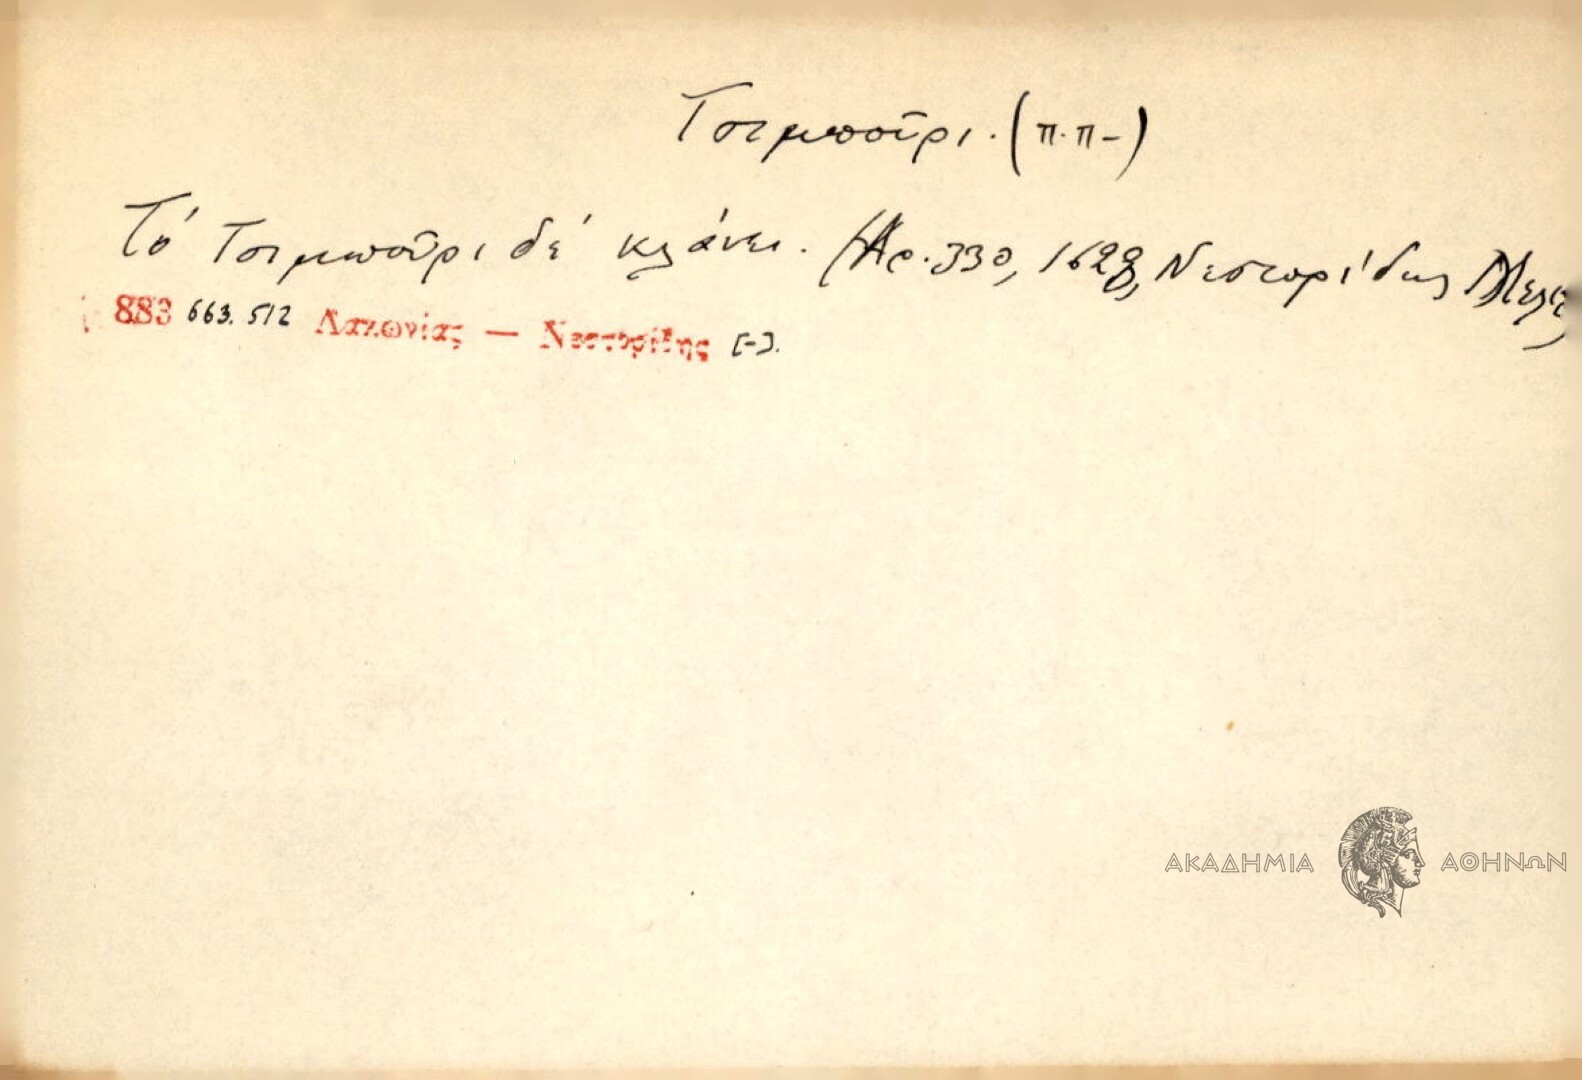 Τσιμποῦρι. (π.π-)
Τό Τσιμποῦρι δέ κλάνει. (Αρ. 330, 1628, Νεστορίδης
883 663. 512 Λακωνίας — Νεστορίδης [-].
ΑΚΑΔΗΜΙΑ ΑΘΗΝΩΝ